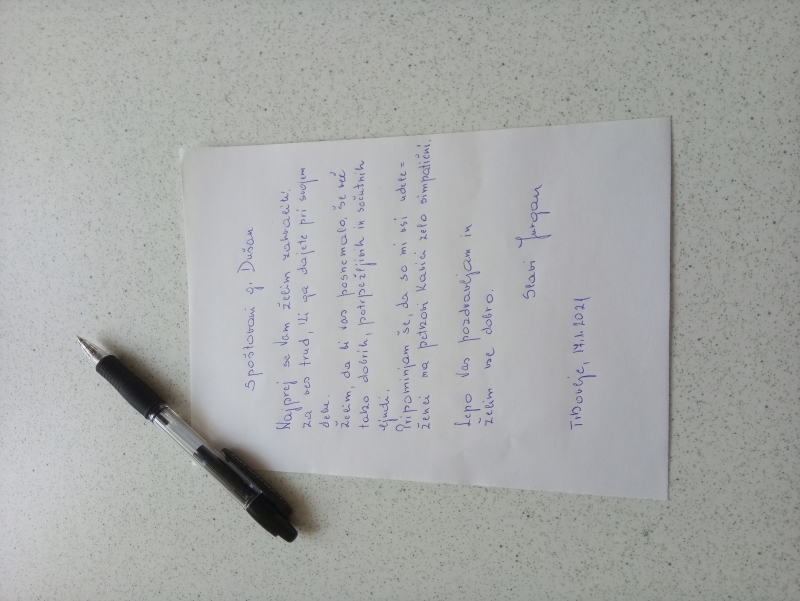 Spoštovani g. Dušan
Najprej se Vam želim zahvaliti
za ves trud, ki ga dajete pri svojem
delu.
Želim, da bi vas posnemalo, še več
tako dobrih, potrpežljivih in sočutnih
ljudi.
Pripominjam še, da so mi vsi udele=
ženci na petkovi kavici zelo simpatični.
Lepo Vas pozdravljam in
želim vse dobro.
Slavi
Trbovlje, 17.1.2021